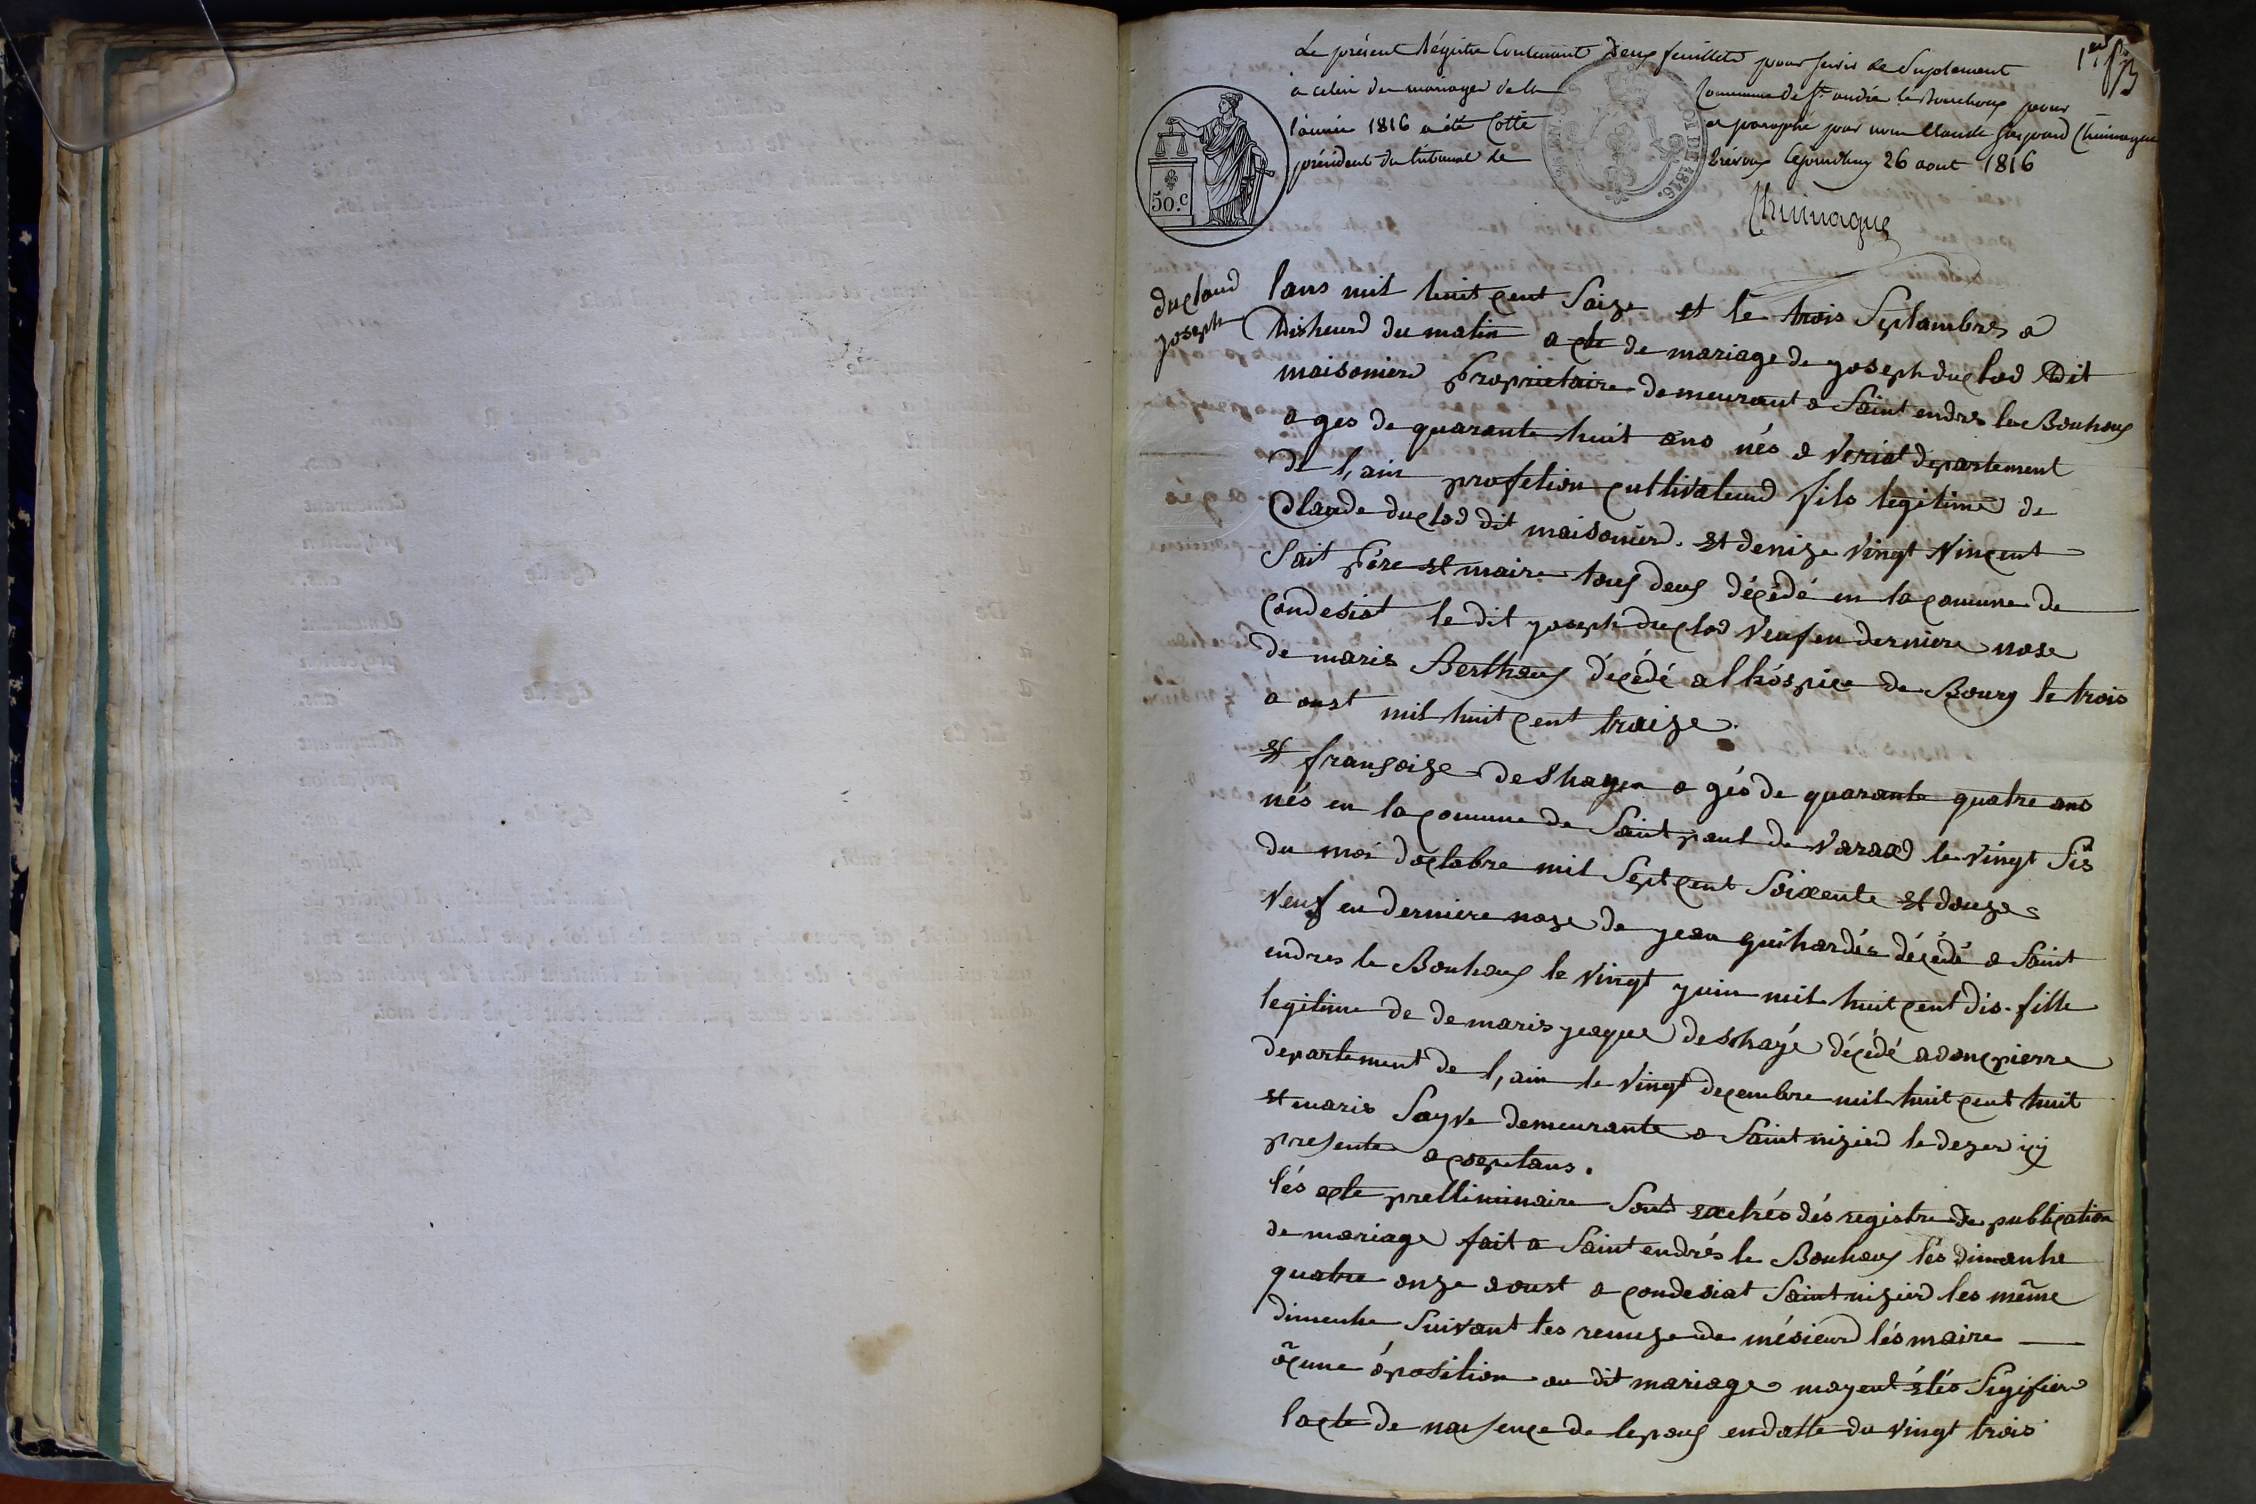 Le présent Régistre Contenant Deux feuillets pour servir de Suplement
à celui des mariages de la Commune de St. andré le Bouchoux pour
l'année 1816 a été Cotté et paraphé par nous Claude Gaspard Chuinague
président du tribunal de trévoux cejourdhuy 26 aout 1816
1er f
50.c
ROI DE 1816.
Chuinague
duclaud
joseph
lans mil huit cent Saize et le trois Septambres a
Disheurs du matin acte de mariage de joseph duclos Dit
maisonier proprietaire demeurant a Saint endres le Bouhoux
ages de quarante huit ans nés a Viriat departement
de l,ain profetion cultivateurs fils legitime de
Claude duclos dit maisonier. et denize vingt Vincent
Sait père et maire tous deux décédé en la comune de
condesiat le dit joseph duclos Veuf en derniere nose
de maris Berthoux décédé a lhóspice de Bourg le trois
aoust mil huit cent traize.
et fransoize deshayer agés de quarante quatre ans
nés en la comune de Saint paul de Varax le vingt Sis
du moi doctobre mil Sept cent Soixente et douzes
Veuf en derniere noze de jean guihardés décédé a Saint
endres le Bouhoux le vingt juin mil huit cent dis. fille
legitime de de maris jeaques deshayé décédé a dompierre
departement de l,ain le vingt decembre mil huit cent huit
et maris Sayve demeurante a Saint nizier le dezer icy
presente aceptans.
lés acte prelliminaire Sont extrés dés registre de publication
de mariage fait a Saint endrés le Bouhoux lés dimanhe
quatre onze aoust a condesiat Saint nizier les même
dimenhe Suivant les remize de mésieurs lés maire
ocune óposition au dit mariage mayent étés Sigifier
lacte de naisence de lepoux en datte du vingt trois